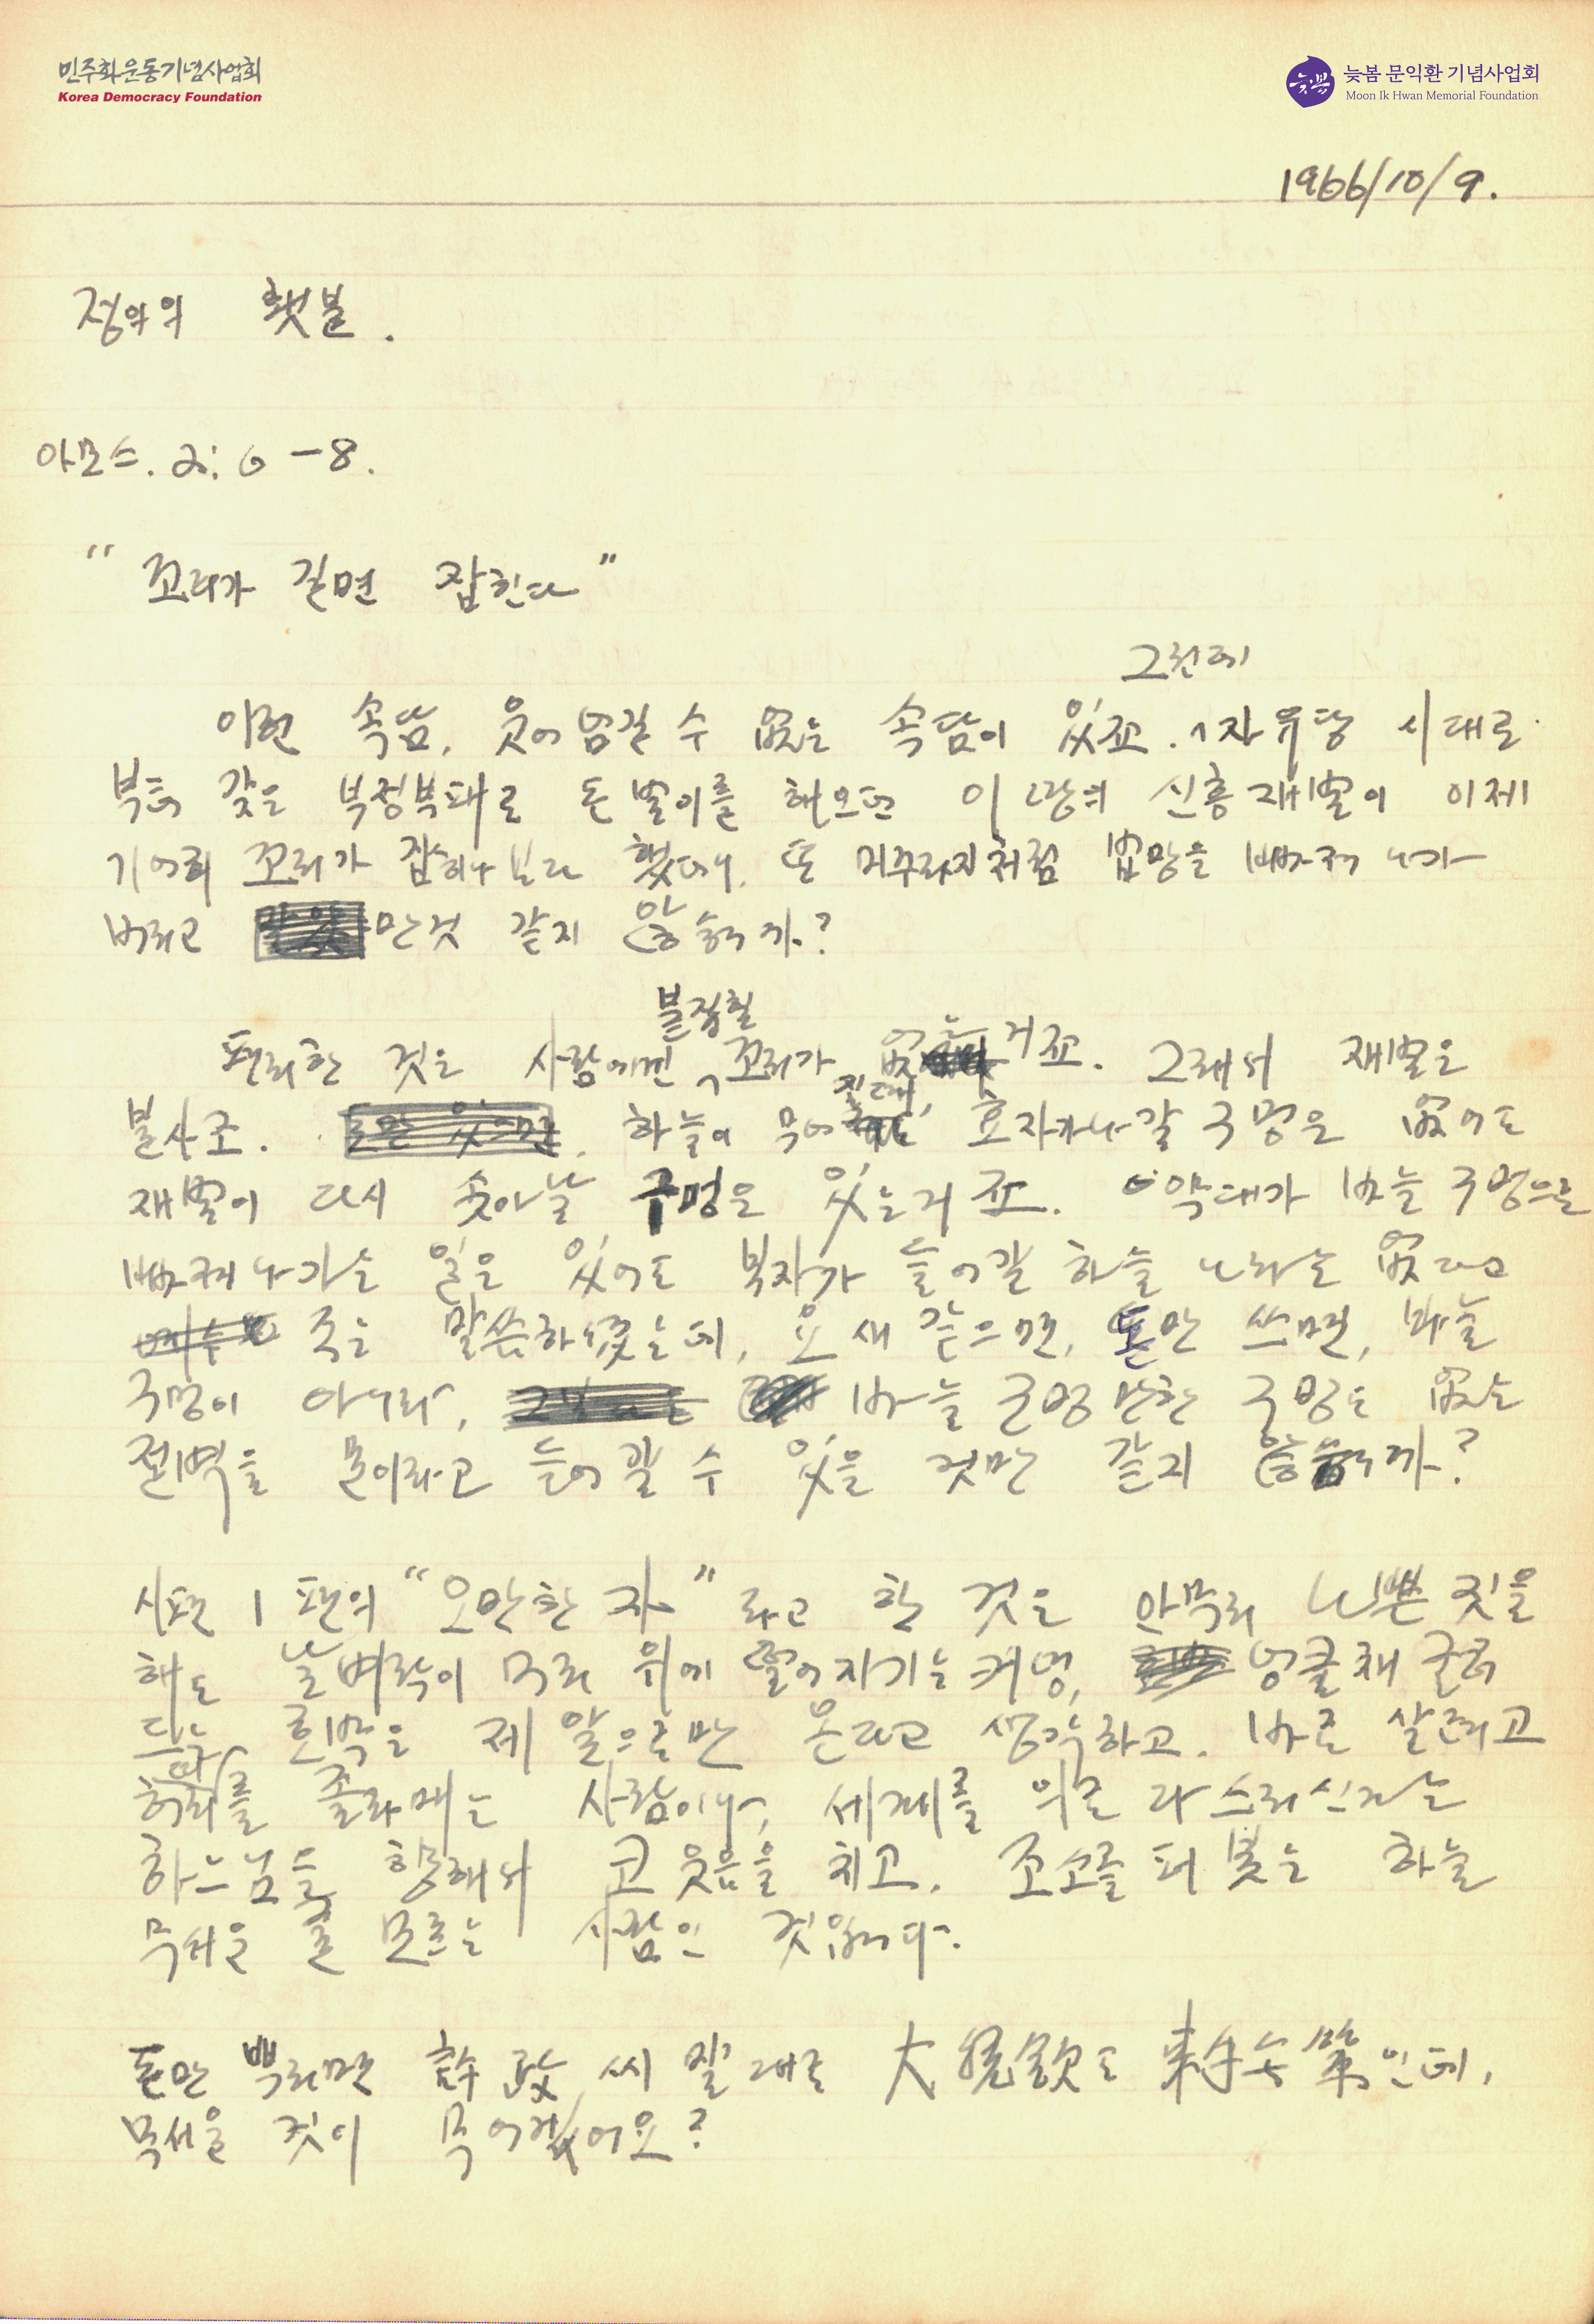 민주화운동기념사업회
Korea Democracy Foundation
늦봄
늦봄 문익환 기념사업회
Moon Ik Hwan Memorial Foundation
1966/10/9.
정의의 횃불.
아모스. 2:6-8.
"꼬리가 길면 잡힌다"
그런데
이런 속담, 웃어넘길 수 없는 속담이 있죠. 자유당 시대로
부터 갖은 부정부패로 돈벌이를 해오던 이 땅의 신흥재벌이 이제
기어히 꼬리가 잡히나보다 했더니, 또 미꾸라지처럼 법망을 빠져 나가
버리고 만것 같지 않습니까?
불잡힐
편리한 것은 사람에겐 꼬리가 없는 거죠. 그래서 재벌은
불사조. 하늘이 무너진대 효자가 나갈 구멍은 없어도
재벌이 다시 솟아날 구멍은 있는거죠. 약대가 바늘 구멍으로
빠져나가는 일은 있어도 부자가 들어갈 하늘 나라는 없다고
주는 말씀하셨는데, 요새 같으면, 돈만 쓰면, 바늘
구멍이 아니라, 바늘 구멍만한 구멍도 없는
절벽을 문이라고 들어갈 수 있을 것만 같지 않습니까?
시편 1편의 "오만한 자"라고 한 것은 아무리 나쁜 짓을
해도 날벼락이 머리 위에 떨어지기는커녕, 넝쿨채 굴러
드는 호박은 제 앞으로만 온다고 생각하고. 바로 살려고
허리를 졸라매는 사람이나, 세계를 의로 다스리신다는
하느님을 향해서 코웃음을 치고, 조소를 퍼붓는 하늘
무서운 줄 모르는 사람인 것입니다.
돈만 뿌리면 許政씨 말대로 大統領도 束手無策인데,
무서울 것이 무어겠어요?